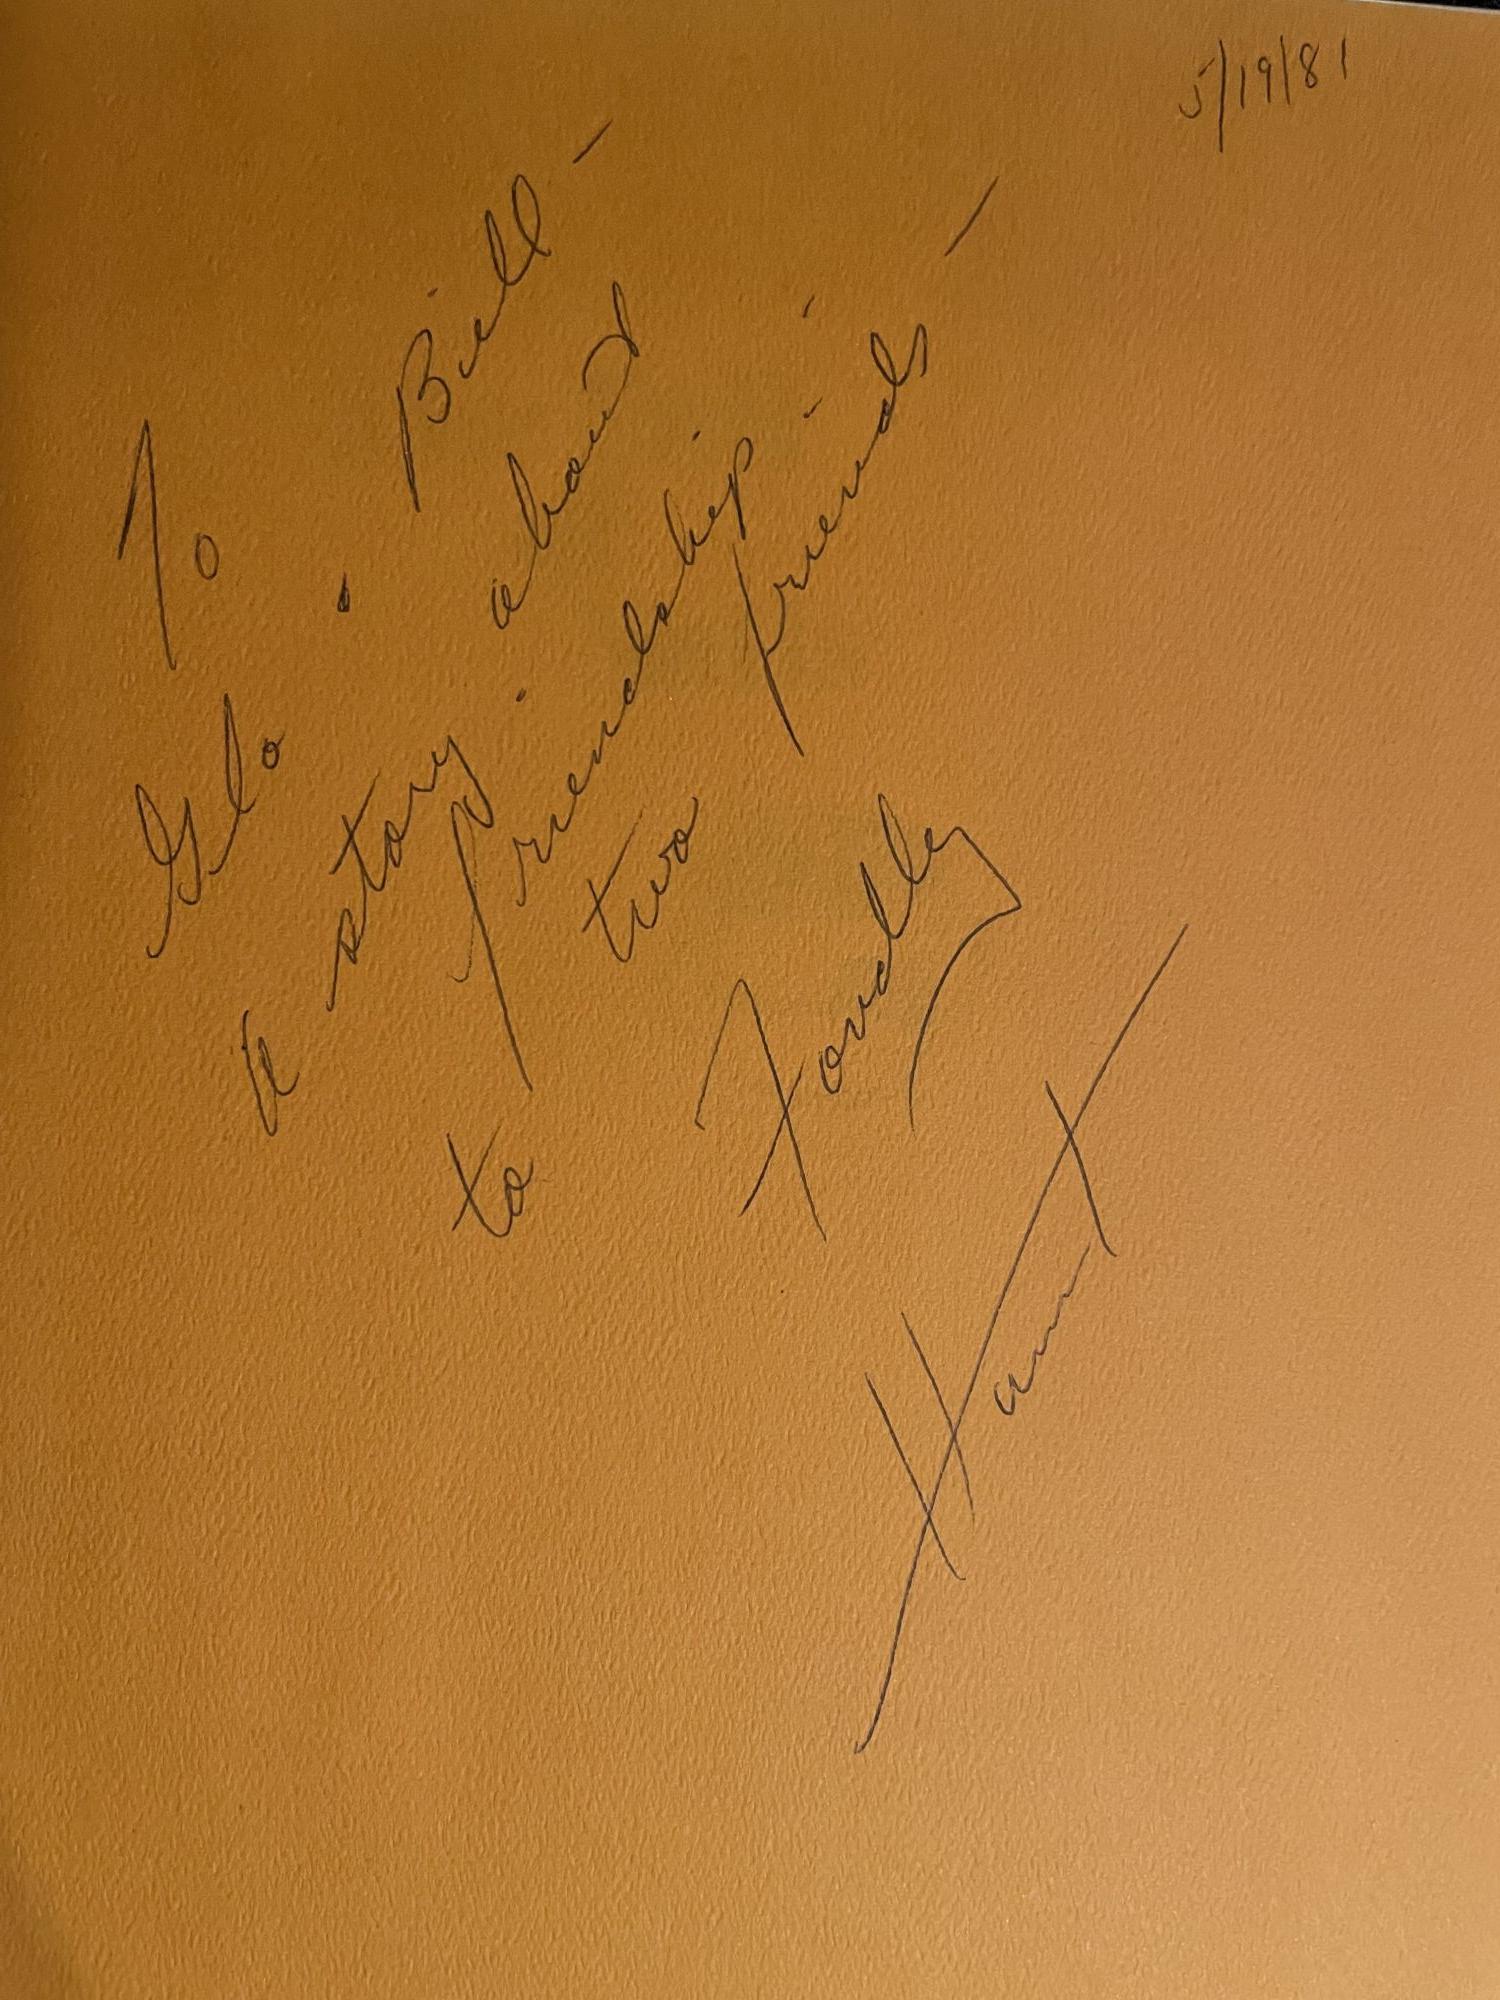 5/19/81
To
Glo . Bill –
a story about
friendship - -
to two friends –
Fondly